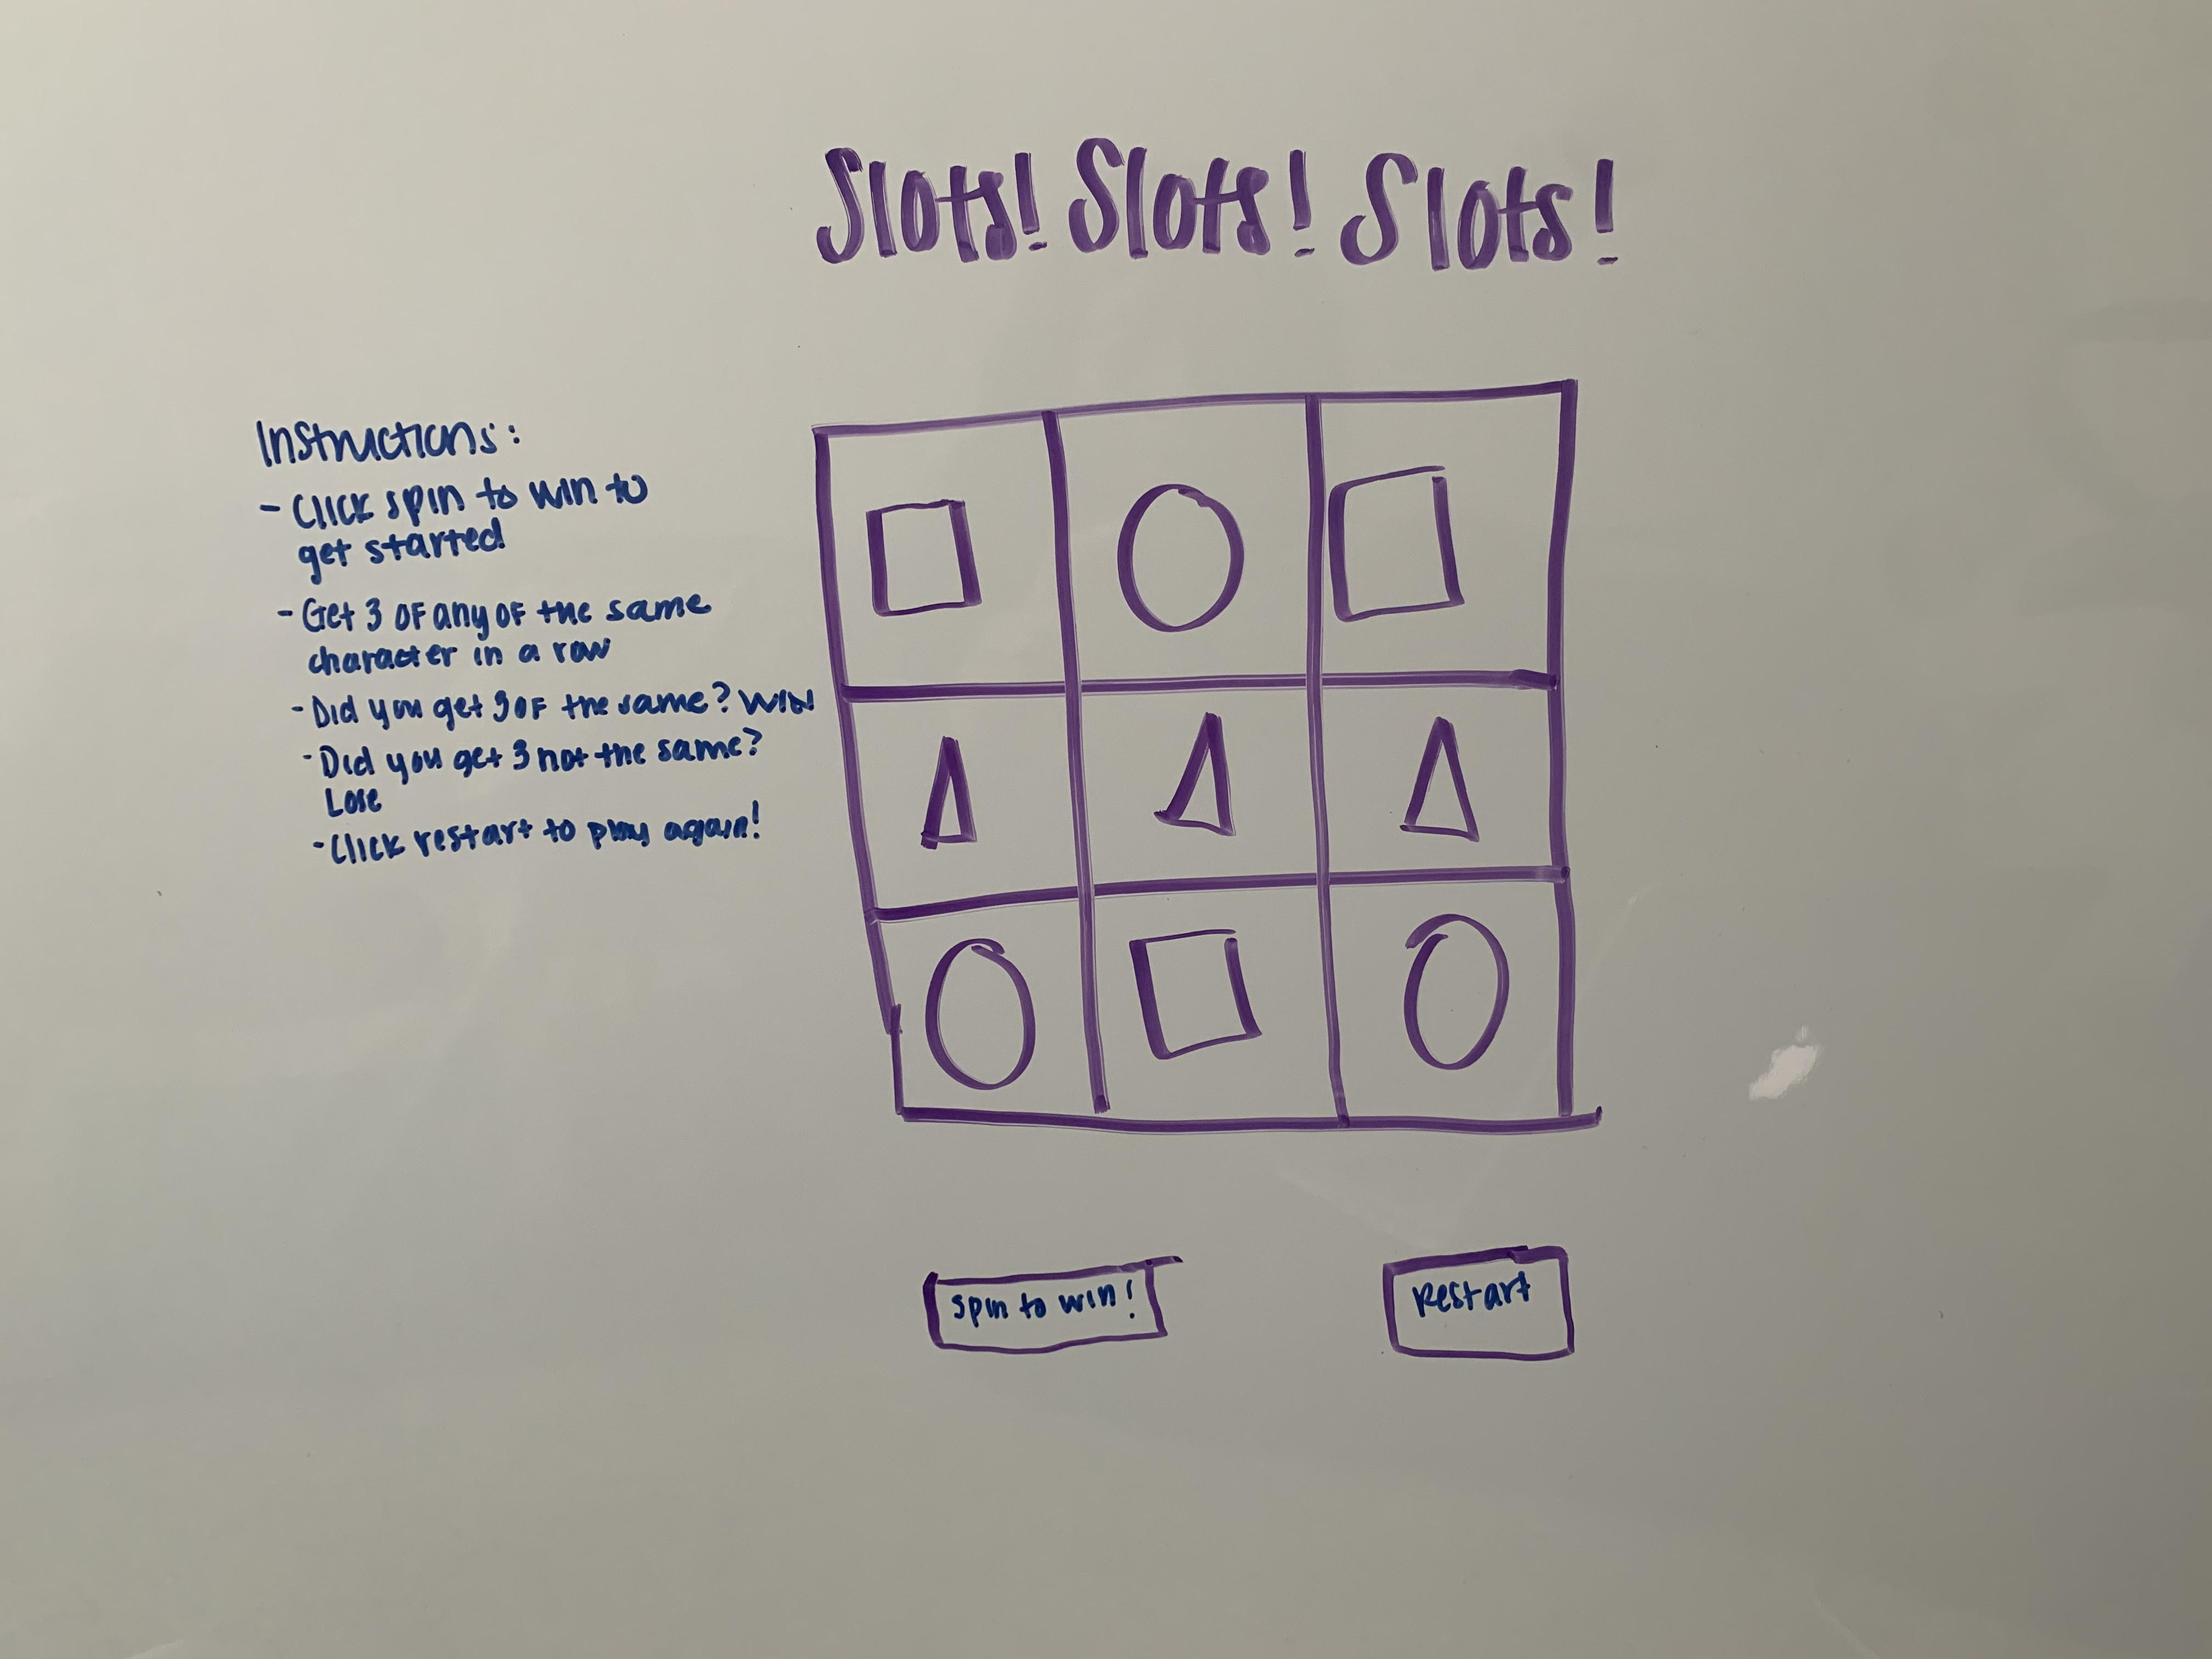 Slots! Slots! Slots!
Instructions:
- Click spin to win to
get started
- Get 3 of any of the same
character in a row
- Did you get 3 of the same? WIN
- Did you get 3 not the same?
Lose
- Click restart to play again!
spin to win!
Restart